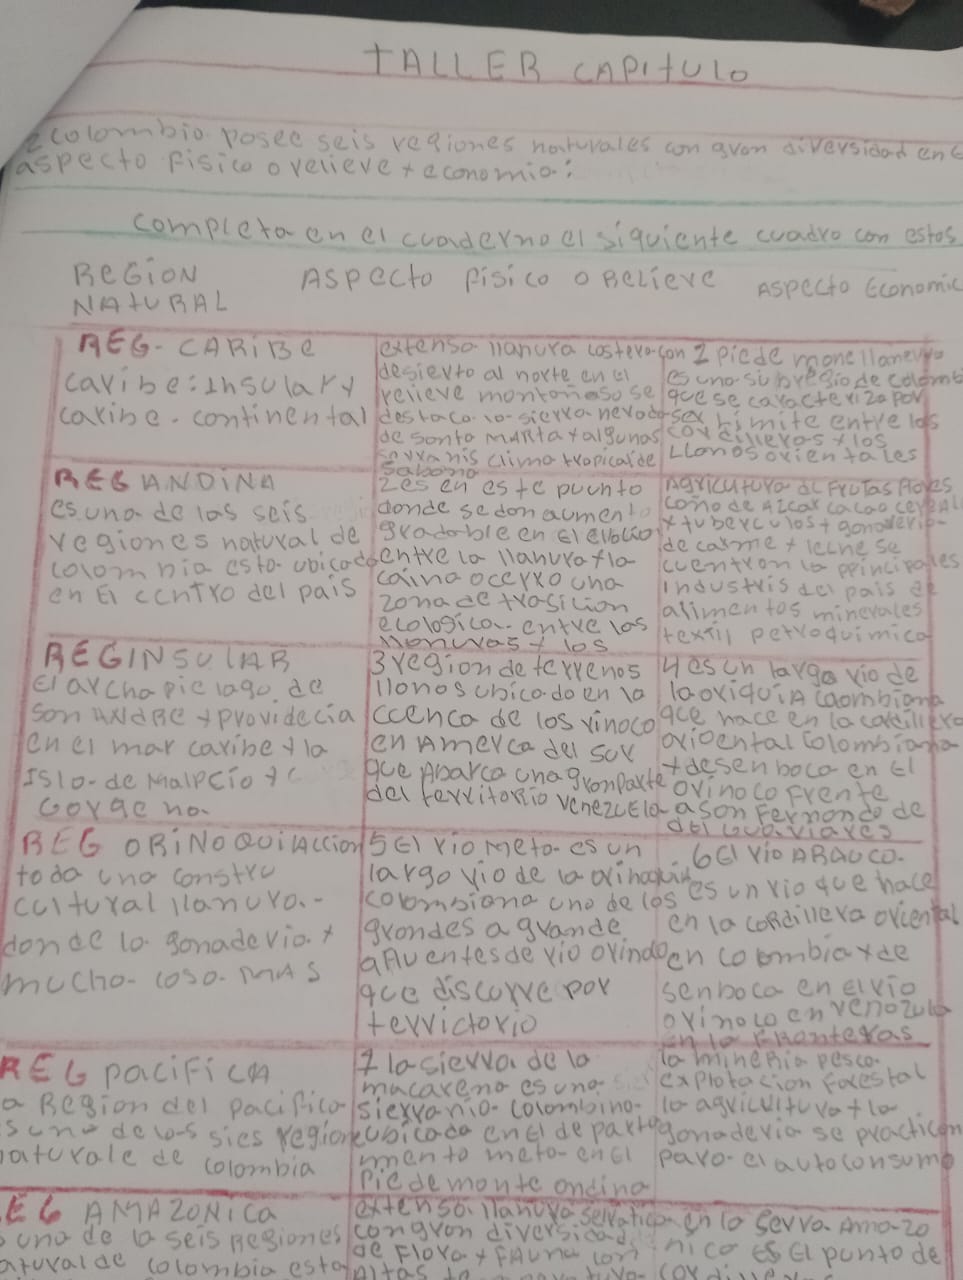 TALLER CAPITULO
colombio posee seis regiones naturales con gran diversidad en
aspecto fisico o relieve y economia:
completa en el cuaderno el siguiente cuadro con estos
REGION NATURAL
ASPECTO fisico o Relieve
ASPECTO Economic
REG- CARIBE
caribe: Insular y
caribe. continental
extensa llanura costera con
desierto al norte en el
relieve montañoso se
destaca. la sierra nevada
de santa MARTA y algunas
clima tropical de
sabana
1 piede mone llanero
es una subregio de colomb
que se caracteriza por
ser Limite entre los
cordilleras y los
LLanos orientales
REG ANDINA
es una de las seis
regiones natural de
colombia esta ubicado
en El centro del pais
2 es en este puunto
donde se don aument
gradable en El
entre la llanura y la
caina o cerro una
zona de trasicion
ecologica. entre las
llanuras y los
Agricutura de Frutas Flores
caña de Azcar cacao cereal
y tuberculos + ganaderia
de carme y leche se
cuentron la principales
industris del pais de
alimentos minerales
textil petroquimica
REG INSULAR
El archapielago de
son ANdRE y providecia
en el mar caribe y la
Islo-de Malpcio y
Gorgena.
3 region de terrenos
llanos ubicado en la
ccenca de los rinoco
en Amerca del sur
que Abarca una gran parte
del territorio venezuela
4 es un largo rio de
la oriquiA Caombiana
que nace en la cordillera
orioental Colombiana
y desenboca en El
orinoco frente
a son Fernando de
REG ORINOQUIA
toda una constru
cultural llanura.
donde la ganaderia y
mucha- cosa- mas
5 El rio meta- es un
largo rio de la orinoquia
colombiana uno de los
grandes a grande
afluentes de rio orinoo
que discorre por
terrictorio
6 El rio ARAUCO.
es un rio que hace
en la cordillera oriental
en colombia y de
senboca en El rio
orinoco en venozula
en la Fronteras
REG PACIFICA
a Region del pacifico
una de las sies regione
naturale de colombia
7 la sierra de la
macarena es una
sierrania- colombina-
ubicada en El departa
mento meta- en El
piedemonte andina
la mineria pesca.
explotacion forestal
la agricultura y la
ganaderia se practican
para- el autoconsumo
REG AMAZONICA
una de la seis Regiones
naturalde colombia esta
extensa. llanura selvatica
con gran diversidad.
de Flora y FAuna con
en la serra Amazo
nico es El punto de